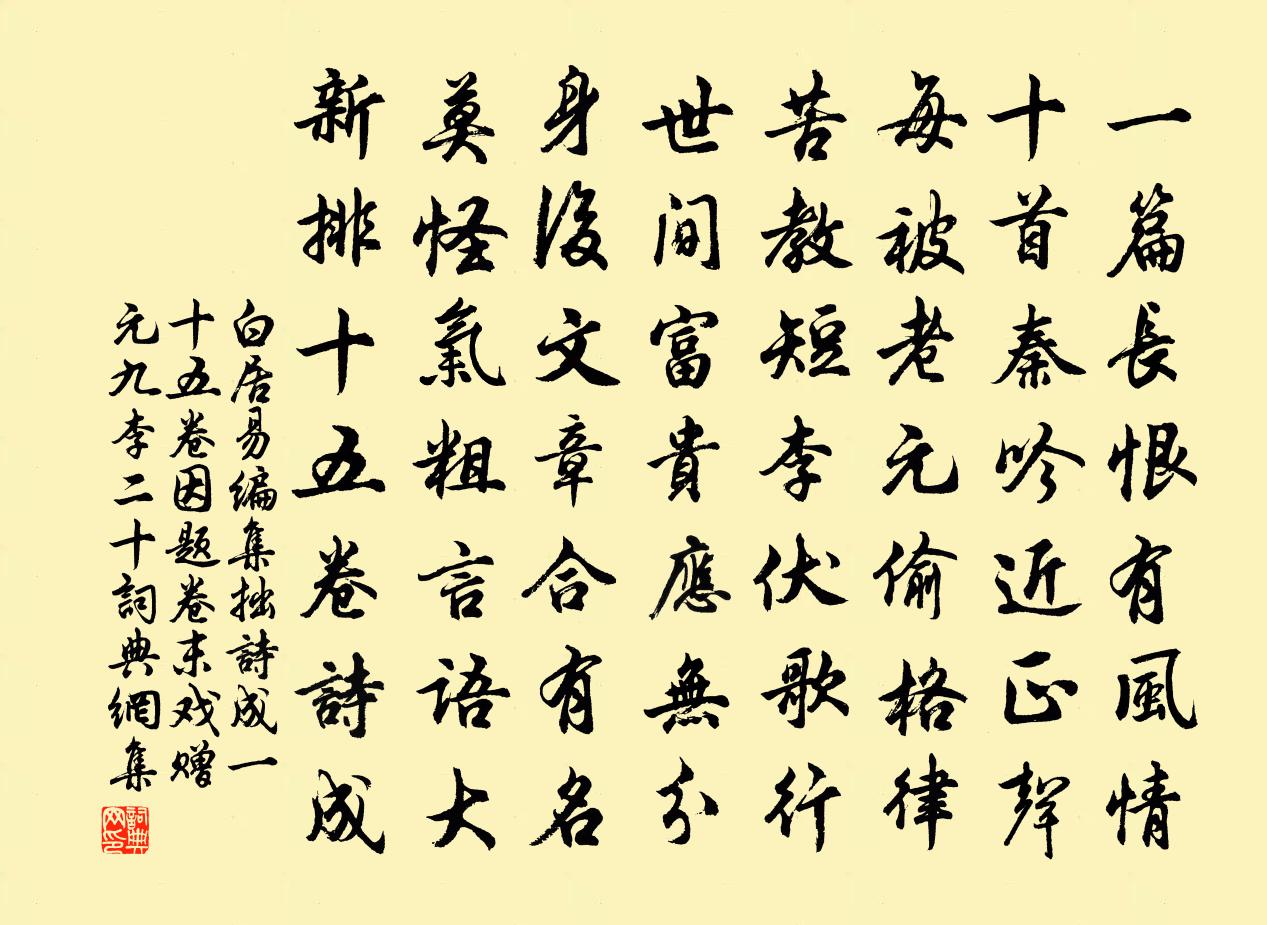 一篇長恨有風情
十首秦吟近正聲
每被老元偷格律
苦教短李伏歌行
世間富貴應無分
身後文章合有名
莫怪氣粗言語大
新排十五卷詩成
白居易編集拙詩成一
十五卷因题卷末戏赠
元九李二十詞典網集
詞典
网印